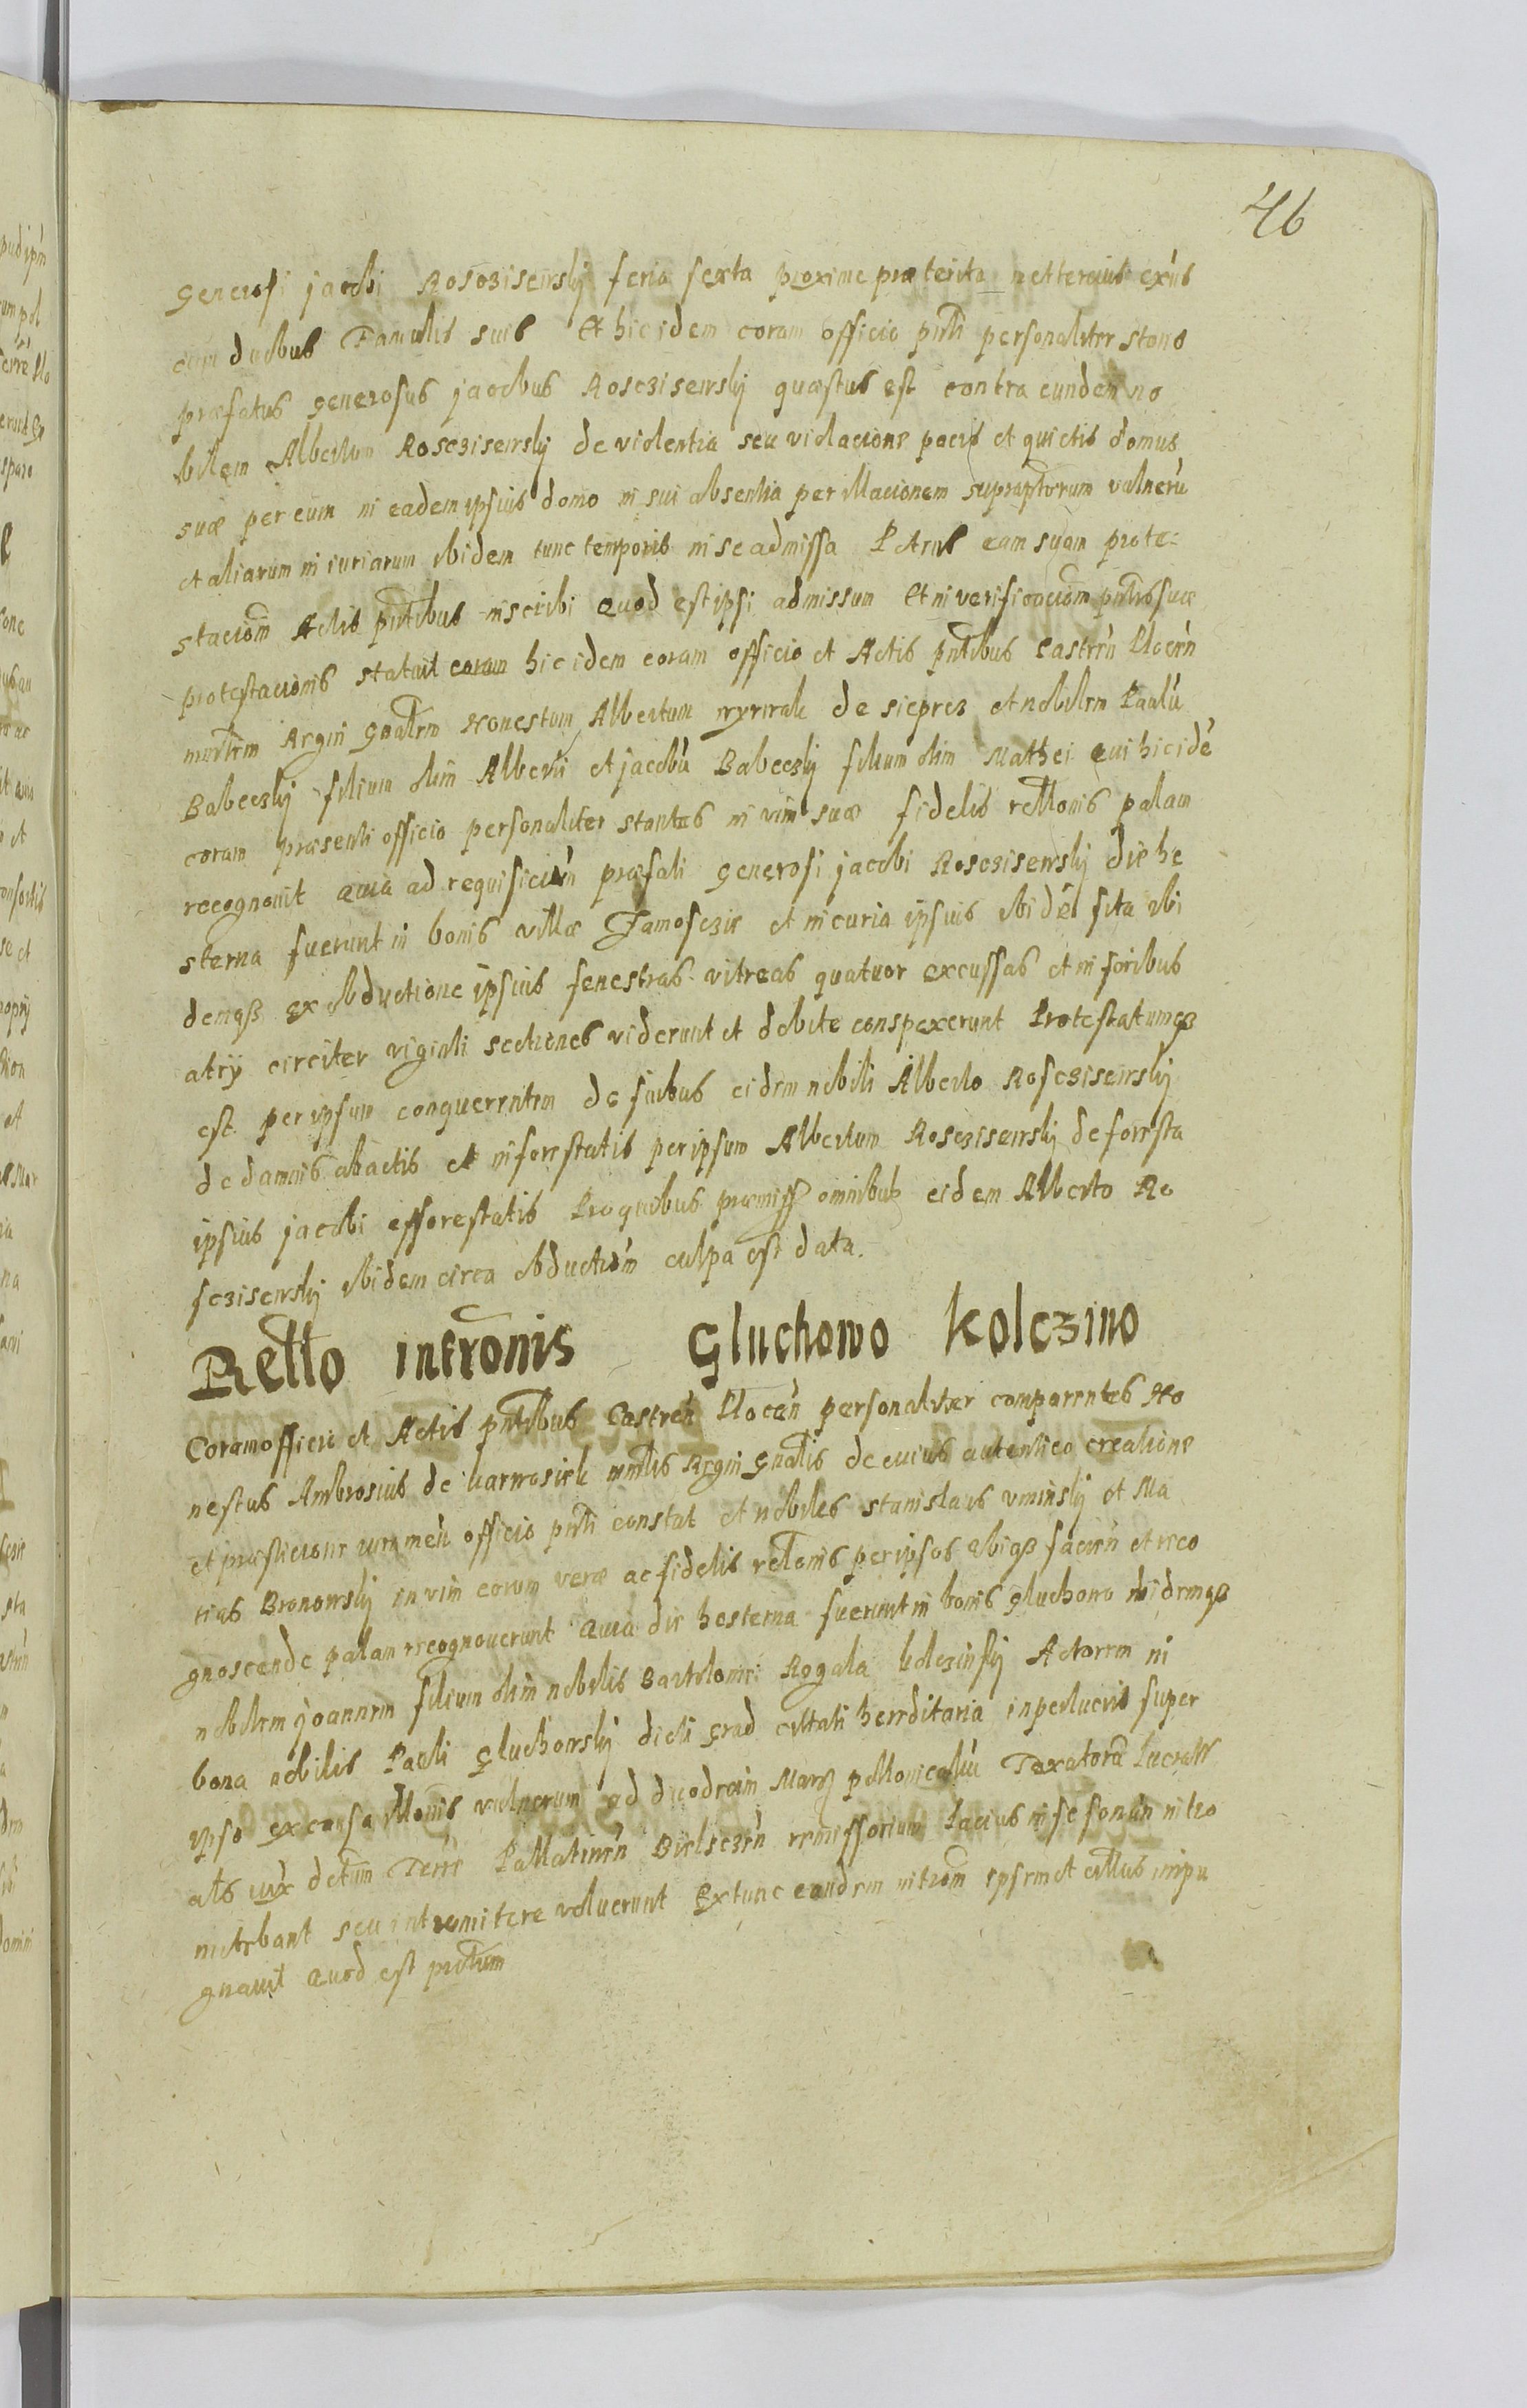 46
Generosi jacobi Rosoziseẃsky feria sexta proxime præterita mettercius exñs
cum duobus Famulis suis Et hic idem coram officio pñti personaliter stans
præfatus generosus jacobus Rosczisewsky quæstus est contra eundem no
bilem Albertum Rosczisewsky de violentia seu violacione pacis et quietis domus
suæ per eum in eadem ipsius domo in sui absentia per illacionem supraptorum vulnerũ
et aliarum iniuriarum ibidem tunc temporis in se admissa Petens eam suam prote=
stacioñ Actis pñtibus inscribi Quod est ipsi admissum Et in verificacioñ pñtis suæ
protestacionis statuit coram hic idem coram officio et Actis pñtibus Castreñ Ploceñ
mrlem Regni gñalem Honestum Albertum de sieprcz et nobilem Paulũ
Babeczky filium olim Alberti et jacobũ Babeczky filium olim Mathei Qui hic idẽ
coram præsenti officio personaliter stantes in vim suæ fidelis rellonis palam
recognouit Quia ad requisicioñ præfati generosi jacobi Rosczisewsky die he
sterna fuerunt in bonis villæ Jamosczie et in curia ipsius ibidẽ sita ibi
demqз ex obductione ipsius fenestras vitreas quatuor excussas et in foribus
atrij circiter viginti sectiones viderunt et debite conspexerunt Protestatumqз
est per ipsum conquerentem de suibus eidem nobili Alberto Rosczisewsky
de damnis abactis et inforestatis per ipsum Albertum Rosczisewsky de foresta
ipsius jacobi efforestatis Pro quibus præmiss omnibus eidem Alberto Ro
sczisewsky ibidem circa obductioñ culpa est data.
Rello intronis Gluchowo Kolczino
Coram officio et Actis pñtibus Castreñ Ploceñ personaliter comparentes Ho
nestus Ambrosius de mrlis Regni Gñalis de cuius autentica creatione
et præsticione iuramẽti officio pñti constat et nobiles stanislaus vminsky et Ma
tias Bronowsky in vim eorum veræ ac fidelis relonis per ipsos vbiqз facieñ et reco
gnoscende palam recognouerunt Quia die hesterna fuerunt in bonis gluchowo ibidemqз
nobilem joannem filium olim nobilis Bartolomei Rogala kolczinsky Actorem in
bona nobilis Pauli gluchowsky dicti grad cittati hereditaria in perlucris super
ipso ex causa illonis vulnerum ad duodecim Marз Taxatorẽ Lucratis
als vix detum Terre Pallatineñ Bielsczeñ remissorium Lacius in se fonañ intro
mittebant seu intromitere voluerunt Extunc eandem introm ipsemet cittus impu
gnauit Quod est pñtum